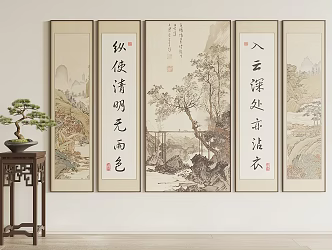 纵使清明无雨色
入云深处亦沾衣